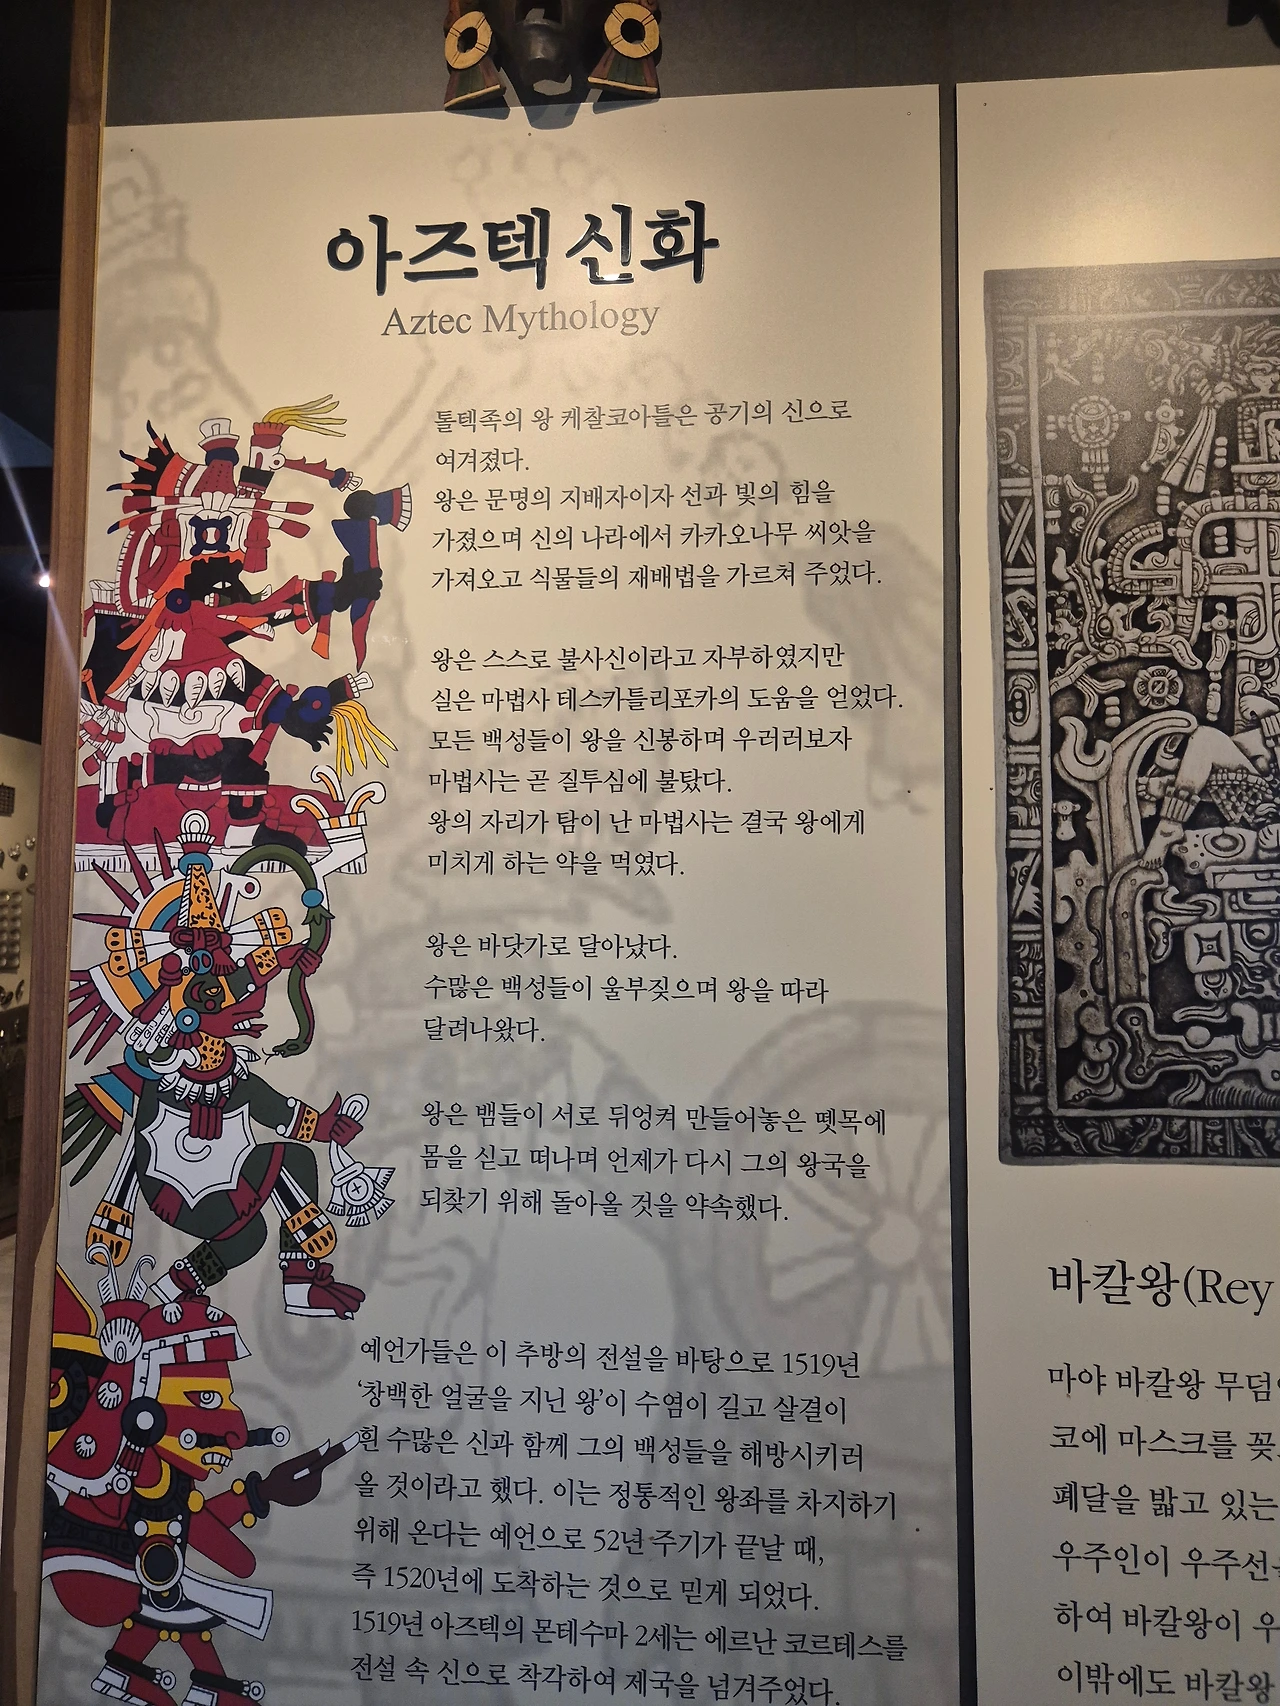 아즈텍 신화
Aztec Mythology
톨텍족의 왕 케찰코아틀은 공기의 신으로
여겨졌다.
왕은 문명의 지배자이자 선과 빛의 힘을
가졌으며 신의 나라에서 카카오나무 씨앗을
가져오고 식물들의 재배법을 가르쳐 주었다.
왕은 스스로 불사신이라고 자부하였지만
실은 마법사 테스카틀리포카의 도움을 얻었다.
모든 백성들이 왕을 신봉하며 우러러보자
마법사는 곧 질투심에 불탔다.
왕의 자리가 탐이 난 마법사는 결국 왕에게
미치게 하는 약을 먹였다.
왕은 바닷가로 달아났다.
수많은 백성들이 울부짖으며 왕을 따라
달려나왔다.
왕은 뱀들이 서로 뒤엉켜 만들어놓은 뗏목에
몸을 싣고 떠나며 언제가 다시 그의 왕국을
되찾기 위해 돌아올 것을 약속했다.
예언가들은 이 추방의 전설을 바탕으로 1519년
‘창백한 얼굴을 지닌 왕’이 수염이 길고 살결이
흰 수많은 신과 함께 그의 백성들을 해방시키러
올 것이라고 했다. 이는 정통적인 왕좌를 차지하기
위해 온다는 예언으로 52년 주기가 끝날 때,
즉 1520년에 도착하는 것으로 믿게 되었다.
1519년 아즈텍의 몬테수마 2세는 에르난 코르테스를
전설 속 신으로 착각하여 제국을 넘겨주었다.
바칼왕(Rey
마야 바칼왕 무덤
코에 마스크를 꽂
페달을 밟고 있는
우주인이 우주선
하여 바칼왕이 우
이밖에도 바칼왕